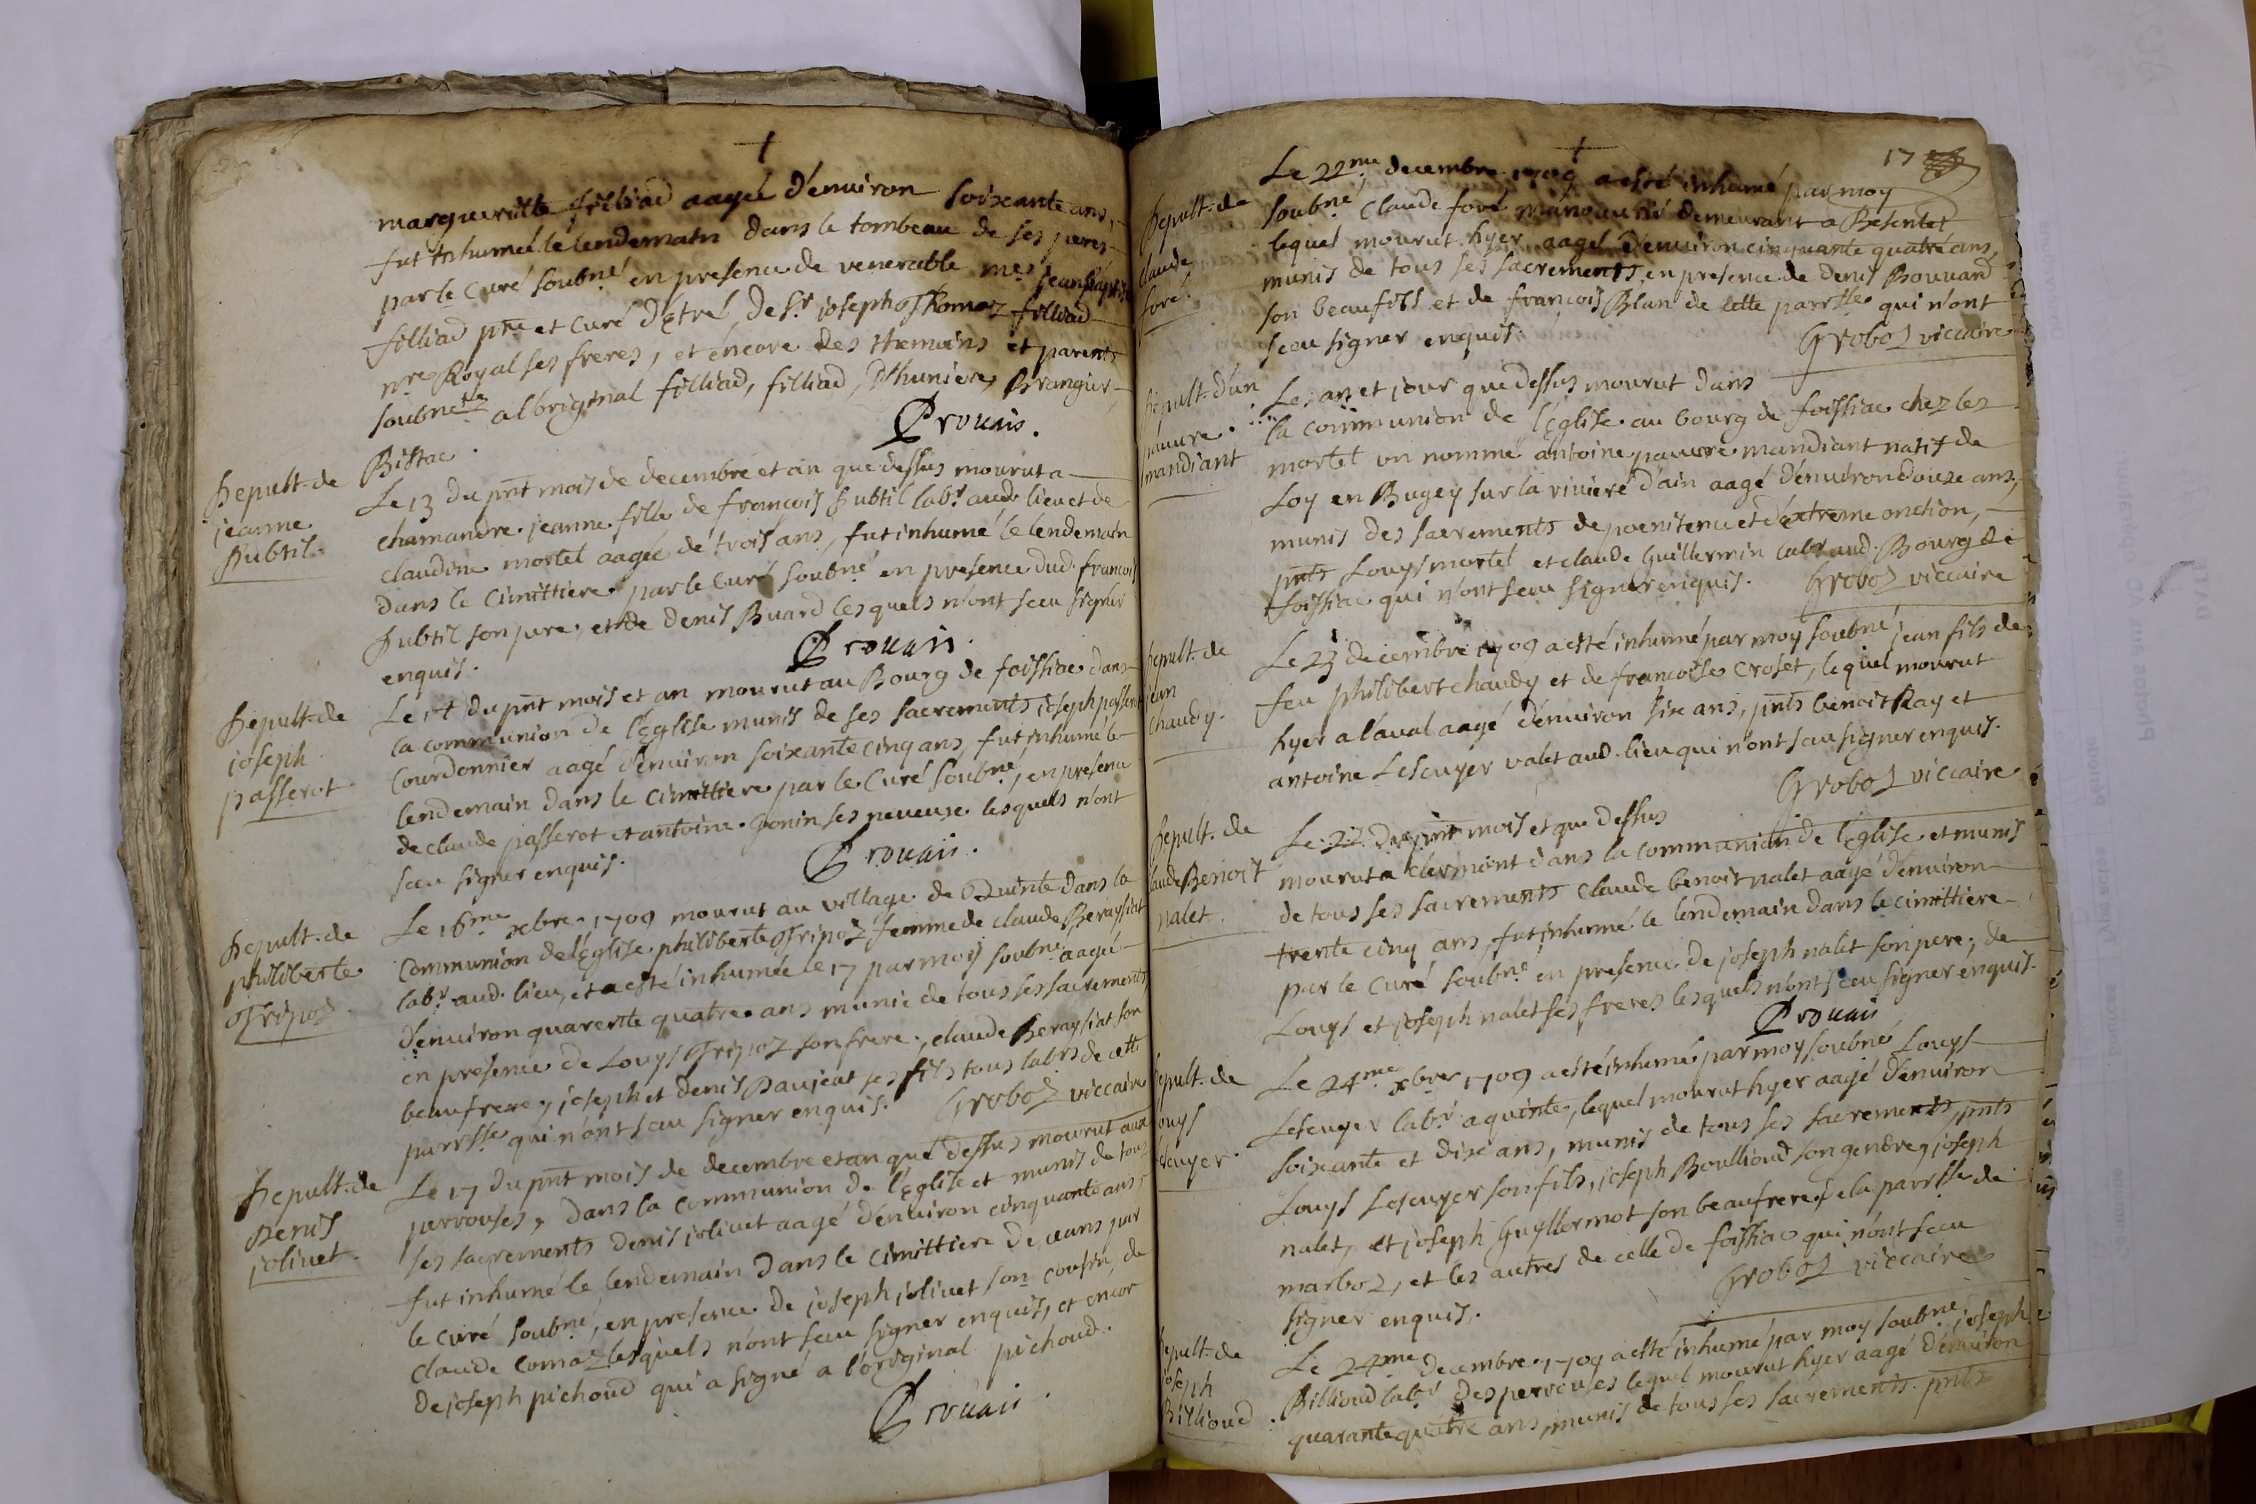 margueritte filliad aagée d'environ soixante ans,
fut inhumée le lendemain dans le tombeau de ses peres
par le curé soubné en presence de venerable mre jean baptiste
filliad ptre et curé d'Etré de Sr joseph Thomaz filliad
nre Royal ses freres, et encore des themoins et parents
soubnez a l'original filliad, filliad, D'hunieres, Brangier
Bistac.
Prouais.
Sepult. de
jeanne
Subtil.
Le 13 du pnt mois de decembre et an que dessus mourut a
chamandre jeanne fille de francois Subtil labr aud. lieu et de
claudine mortel aagée de trois ans, fut inhumé le lendemain
dans le cimittiere par le Curé soubné en presence dud. francois
Subtil son pere, et de denis Buard lesquels n'ont sceu signer
enquis.
Prouais.
Sepult. de
joseph
passerot
Le 14 du pnt mois et an mourut au Bourg de foissiac dans
la communion de l'Eglise munis de ses sacrements joseph passerot
Courdonnier aagé d'environ soixante cinq ans, fut inhumé le
lendemain dans le cimittiere par le Curé soubné, en presence
de claude passerot et antoine gonin ses neueuse lesquels n'ont
sceu signer enquis.
Prouais.
Sepult. de
philiberte
Tripoz
Le 16me xbre 1709 mourut au village de Quinte dans la
Communion de l'Eglise philiberte Tripoz femme de claude Beraysiat
labr aud. lieu, et a esté inhumée le 17 par moy soubné aagée
d'environ quarente quatre ans munie de tous ses sacrements
en presence de Louys Tripoz son frere, claude Beraysiat son
beaufrere, joseph et denis Paujeat ses fils tous labrs de cette
parrsse qui n'ont sceu signer enquis. Groboz viccaire
Sepult. de
Denis
jolivet.
Le 17 du pnt mois de decembre et an que dessus mourut aux
pervouses, dans la communion de l'Eglise et munis de tous
ses sacrements denis jolivet aagé d'environ cinquante ans,
fut inhumé le lendemain dans le cimittiere de ceans par
le curé soubné, en presence de joseph jolivet son cousin, de
claude Comaz lesquels n'ont sceu signer enquis, et encor
de joseph pichoud qui a signé a l'original pichoud.
Prouais.
17
Sepult. de
claude
foré
Le 22me decembre 1709 a esté inhumé par moy
soubné Claude foré manouvrié demeurant a Besentet
lequel mourut hyer aagé d'environ cinquante quatre ans,
munis de tous ses sacrements, en presence de denis Bouvard
son beaufils et de francois Blan de cette parrsse qui n'ont
sceu signer enquis.
Groboz viccaire
Sepult. d'un
pauvre
mandiant
Les an et jour que dessus mourut dans
la communion de l'Eglise au bourg de foissiac chez les
mortel un nommé antoine pauvre mandiant natif de
Loy en Bugey sur la riviere d'ain aagé d'environ douze ans,
munis des sacrements de poenitence et d'extreme onction,
pnts Louys mortel et claude Guillermin labr aud. Bourg de
foissiac qui n'ont sceu signer enquis. Groboz viccaire
Sepult. de
jean
chaudy.
Le 23 decembre 1709 a esté inhumé par moy soubné jean fils de
feu philibert chaudy et de francoise Croset, lequel mourut
hyer a l'aval aagé d'environ six ans, pnts benoit Ray et
antoine Lescuyer valet aud. lieu qui n'ont sceu signer enquis.
Groboz viccaire
Sepult. de
claude Benoit
nalet.
Le 22 du pnt mois et que dessus
mourut a clermont dans la communion de l'Eglise et munis
de tous ses sacrements Claude benoit nalet aagé d'environ
trente cinq ans, fut inhumé le lendemain dans le cimittiere
par le Curé soubné en presence de joseph nalet son pere, de
Louys et joseph nalet ses freres lesquels n'ont sceu signer enquis.
Prouais
Sepult. de
Louys
Lescuyer.
Le 24me xbre 1709 a esté inhumé par moy soubné Louys
Lescuyer labr a quinte, lequel mourut hyer aagé d'environ
soixante et dix ans, munis de tous ses sacrements, pnts
Louys Lescuyer son fils, joseph Boullioud son gendre, joseph
nalet, et joseph Guyllermot son beaufrere, de la parrsse de
marboz, et les autres de celle de foissiac qui n'ont sceu
signer enquis.
Groboz viccaire
Sepult. de
joseph
Billioud.
Le 24me decembre 1709 a esté inhumé par moy soubné joseph
Billioud labr des pervouses lequel mourut hyer aagé d'environ
quarante quatre ans, munis de tous ses sacrements. pnts